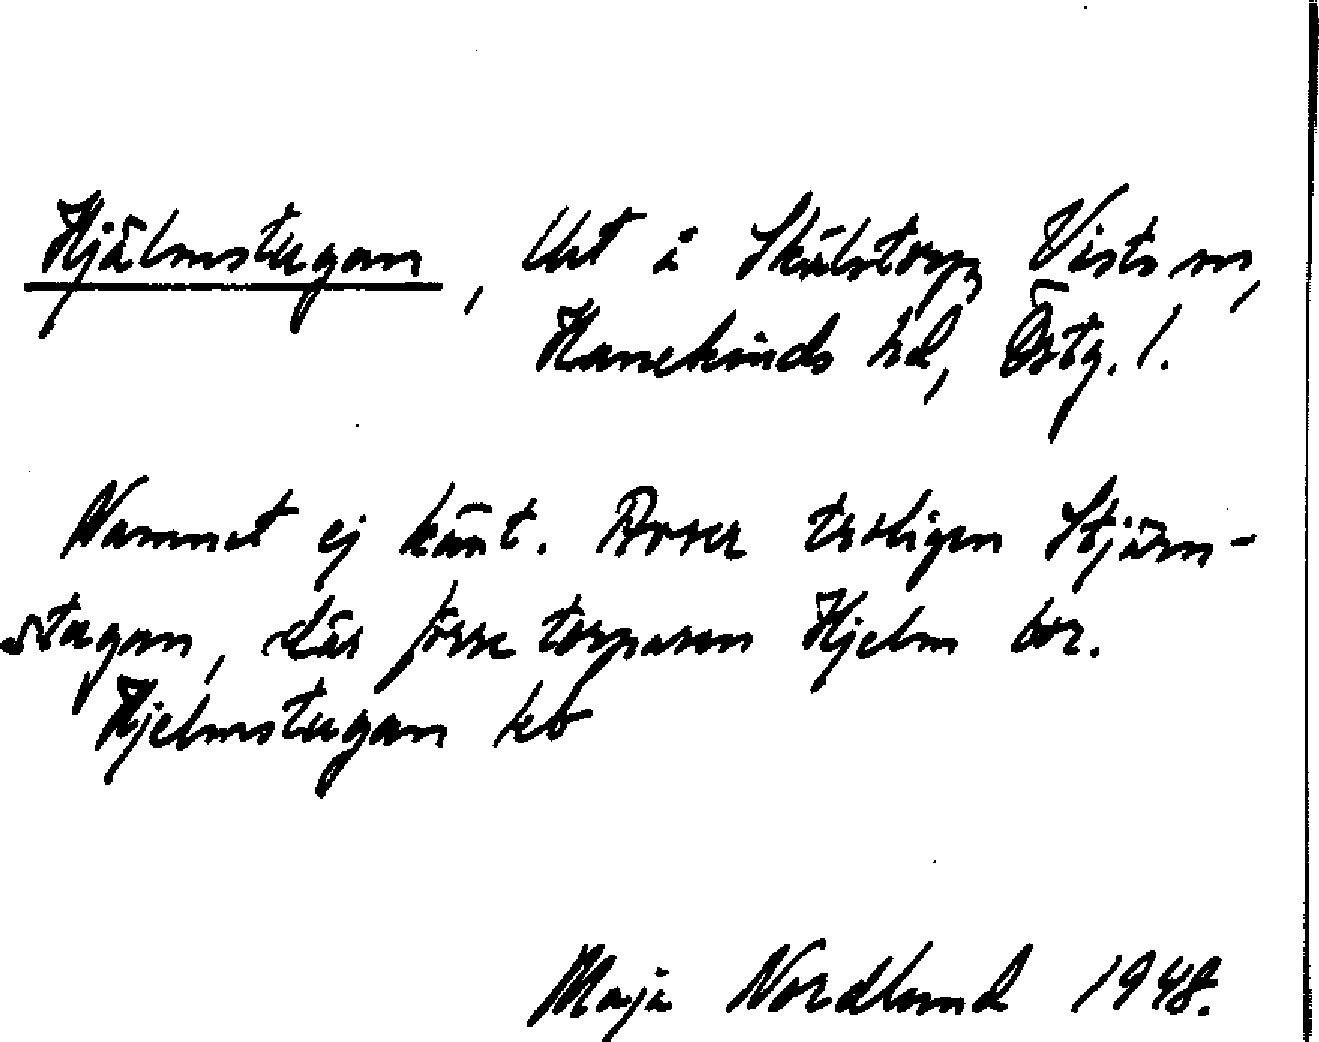 Hjälmstugan, lht å Skälstorp, Vists sn,
Hanekinds hd, Östg. l.
Namnet ej känt. Avser troligen Stjärn-
stugan, där förre torparen Hjelm bor.
Hjelmstugan kb
Maja Nordlund 1948.